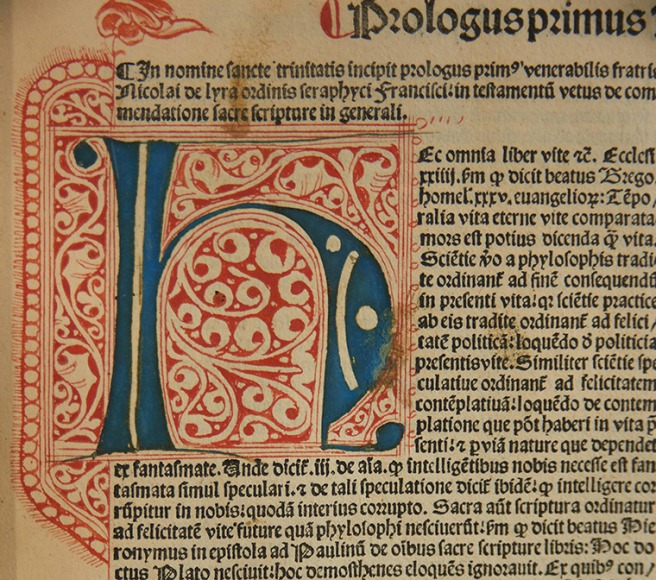 Prologus primus
¶ In nomine sancte trinitatis incipit prologus primꝰ venerabilis fratris
Nicolai de lyra ordinis seraphyci Francisci: in testamentū vetus de com
mendatione sacre scripture in generali.
Hec omnia liber vite ⁊c̄. Eccless
xxiiij. ẜm ꝙ dicit beatus Grego
homel. xxxv. euangelioꝝ: Tēpo/
ralis vita eterne vite comparata
mors est potius dicenda q̄ vita.
Sciētie ꝟo a phylosophis tradi
te ordinant̄ ad finē consequendū
in presenti vita: qꝛ sciētie practice
ab eis tradite ordinant̄ ad felici/
tatē politicā: loquēdo ð politicia
presentis vite. Similiter sciētie spe
culatiue ordinant̄ ad felicitatem
contēplatiuā: loquēdo de contem
platione que pōt haberi in vita p̄
senti: ⁊ ꝑ viā nature que dependet
ex fantasmate. Unde dicit̄ .iij. de aīa. ꝙ intelligētibus nobis necesse est fan
tasmata simul speculari. ⁊ de tali speculatione dicit̄ ibidē: ꝙ intelligere cor
rūpitur in nobis: quodā interius corrupto. Sacra aūt scriptura ordinatur
ad felicitatē vite future quā phylosophi nesciuerūt: ẜm ꝙ dicit beatus Hie
ronymus in epistola ad Paulinū de oībus sacre scripture libris: Hoc do
ctus Plato nesciuit: hoc demosthenes eloquēs ignorauit. Ex quibꝰ con/